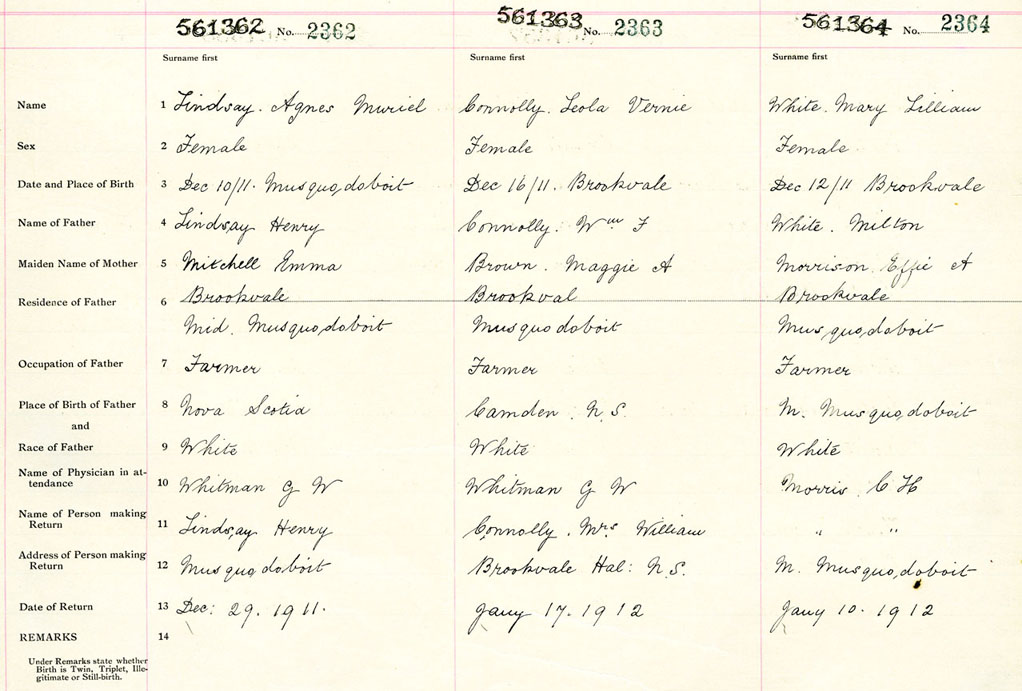 561362 No. 2362 561363 No. 2363 561364 No. 2364
Surname first Surname first Surname first
Name 1 Lindsay. Agnes Muriel Connolly. Leola Vernie White. Mary Lilliam
Sex 2 Female Female Female
Date and Place of Birth 3 Dec 10/11. Musquodoboit Dec 16/11. Brookvale Dec 12/11 Brookvale
Name of Father 4 Lindsay Henry Connolly. Wm F White. Milton
Maiden Name of Mother 5 Mitchell Emma Brown. Maggie A Morrison. Effie A
Residence of Father 6 Brookvale Brookval Brookvale
Mid. Musquodoboit Musquodoboit Musquodoboit
Occupation of Father 7 Farmer Farmer Farmer
Place of Birth of Father 8 Nova Scotia Camden. N.S. M. Musquodoboit
and
Race of Father 9 White White White
Name of Physician in at-
tendance 10 Whitman G W Whitman G W Morris. C H
Name of Person making
Return 11 Lindsay Henry Connolly. Mrs William " "
Address of Person making
Return 12 Musquodoboit Brookvale Hal: N.S. M. Musquodoboit
Date of Return 13 Dec: 29. 1911. Jany 17. 1912 Jany 10. 1912
REMARKS 14
Under Remarks state whether
Birth is Twin, Triplet, Ille-
gitimate or Still-birth.